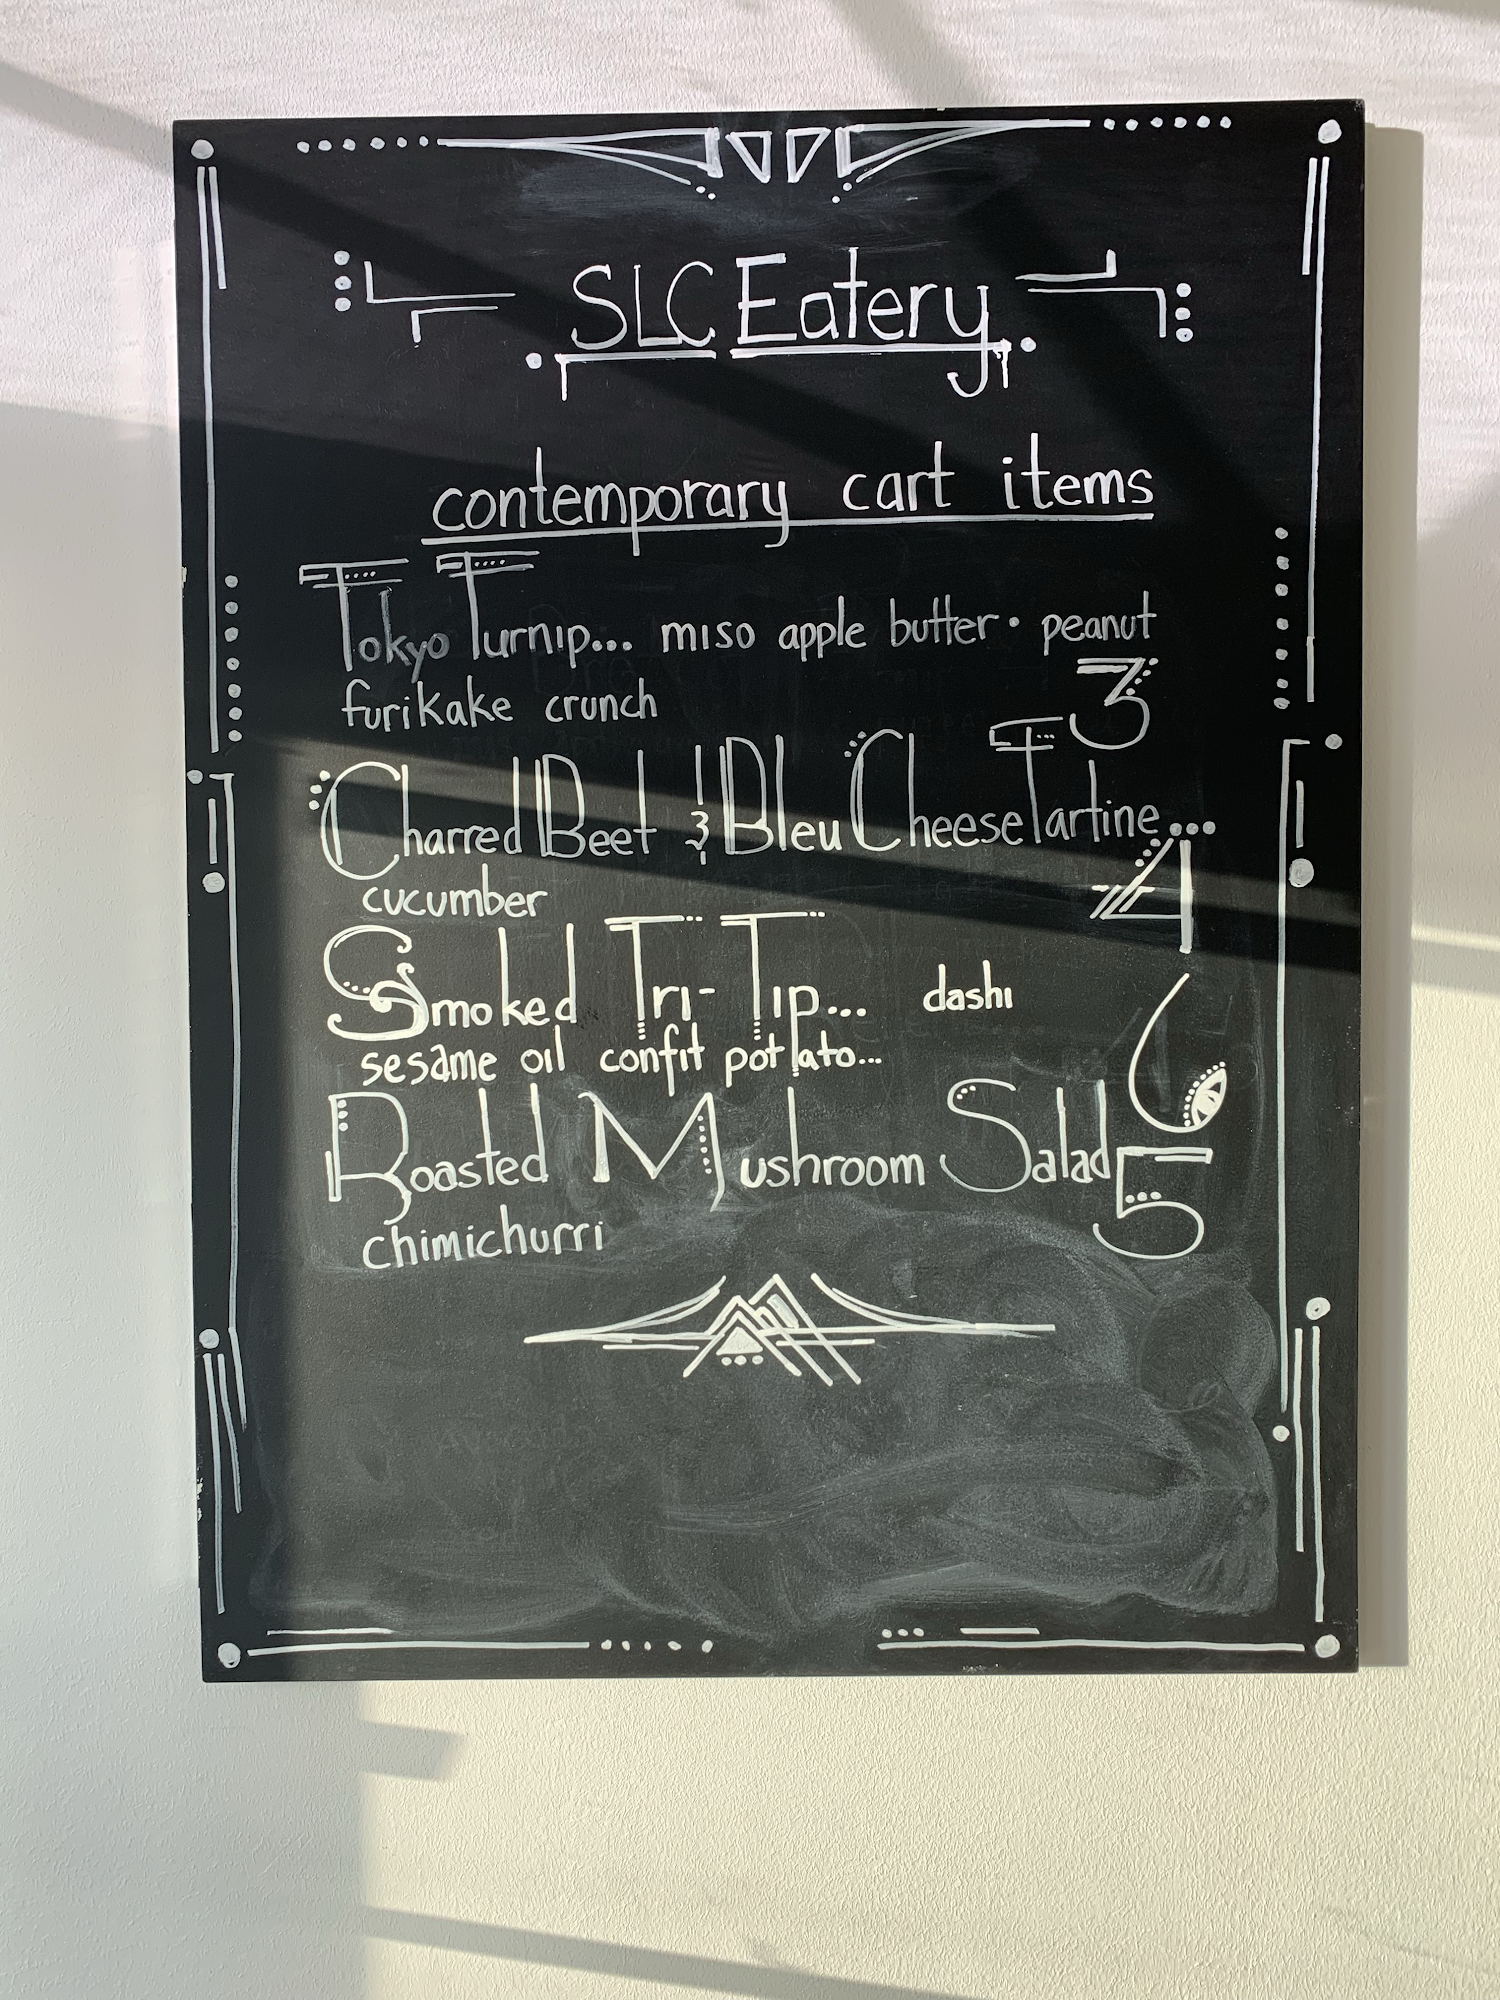 SLC Eatery
contemporary cart items
Tokyo Turnip... miso apple butter • peanut
furikake crunch 3
Charred Beet & Bleu Cheese Tartine...
cucumber 4
Smoked Tri-Tip... dashi
sesame oil confit potato... 6
Roasted Mushroom Salad
chimichurri 5